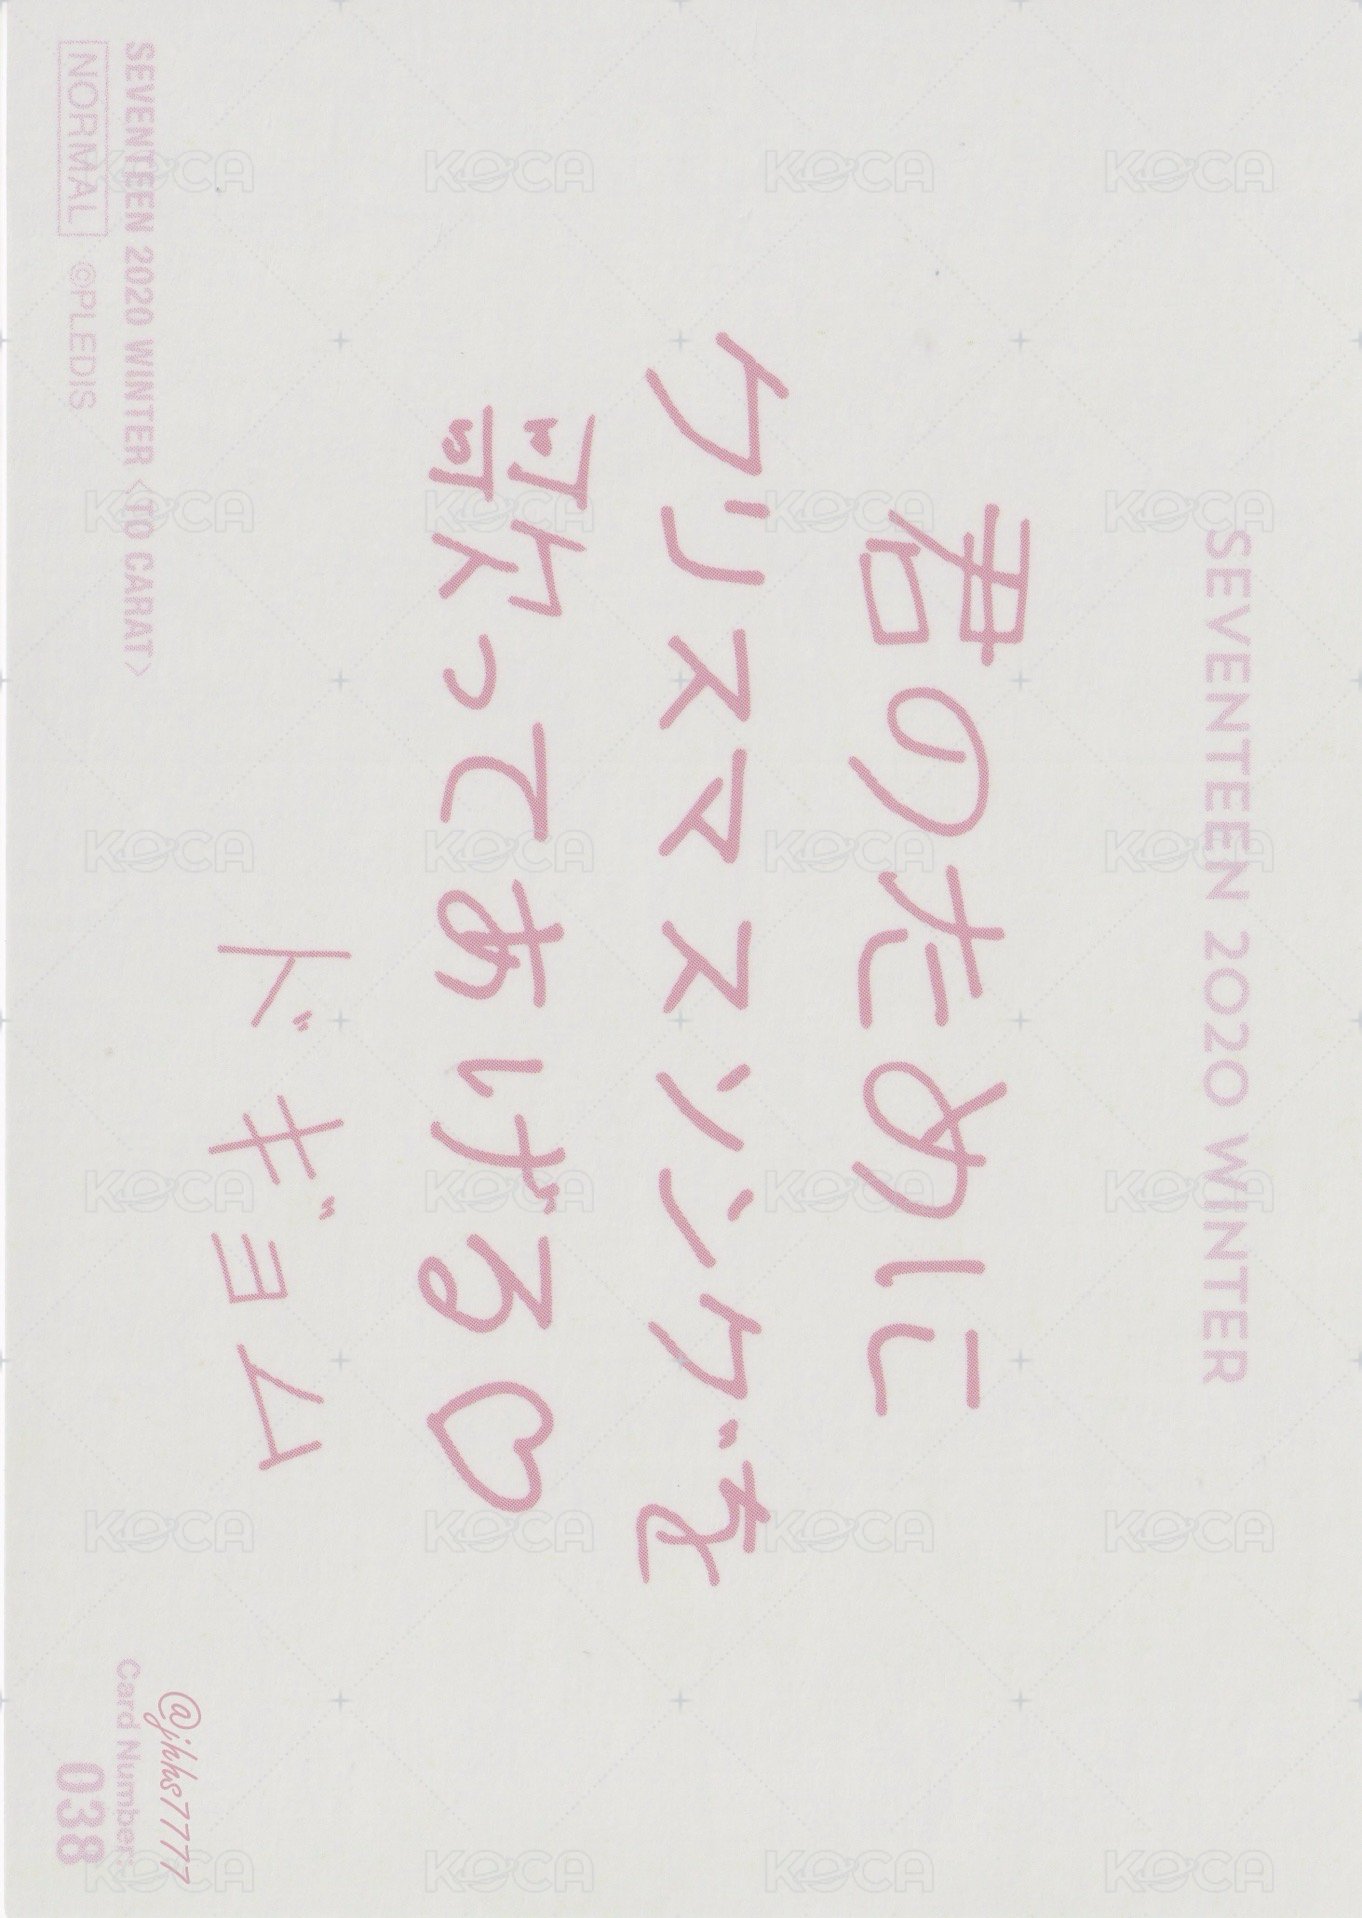 SEVENTEEN 2020 WINTER
君のために
クリスマスソングを
歌ってあげる♡
ドギョム
SEVENTEEN 2020 WINTER <TO CARAT>
NORMAL ©PLEDIS
@jhhs7777
Card Number:
038
KOCA